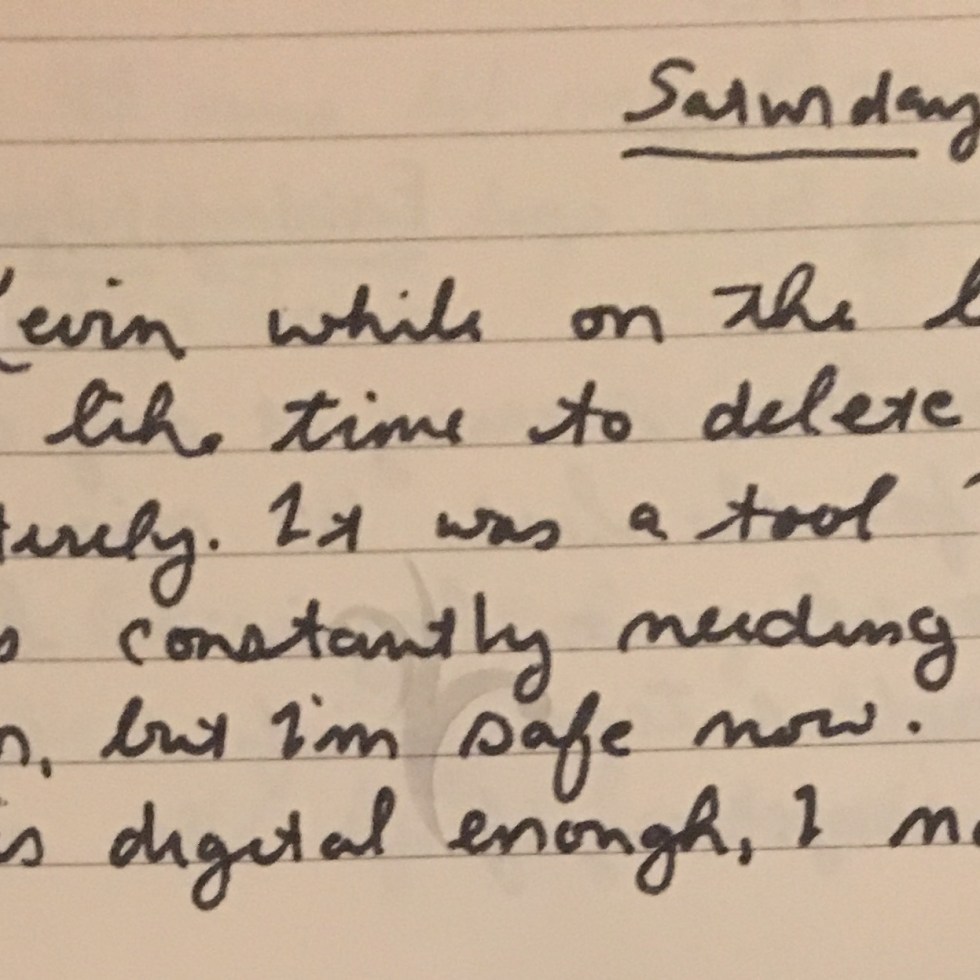 Saturday
Kevin while on the
like time to delete
tirely. It was a tool
constantly needing
n, but I'm safe now.
is digital enough, I